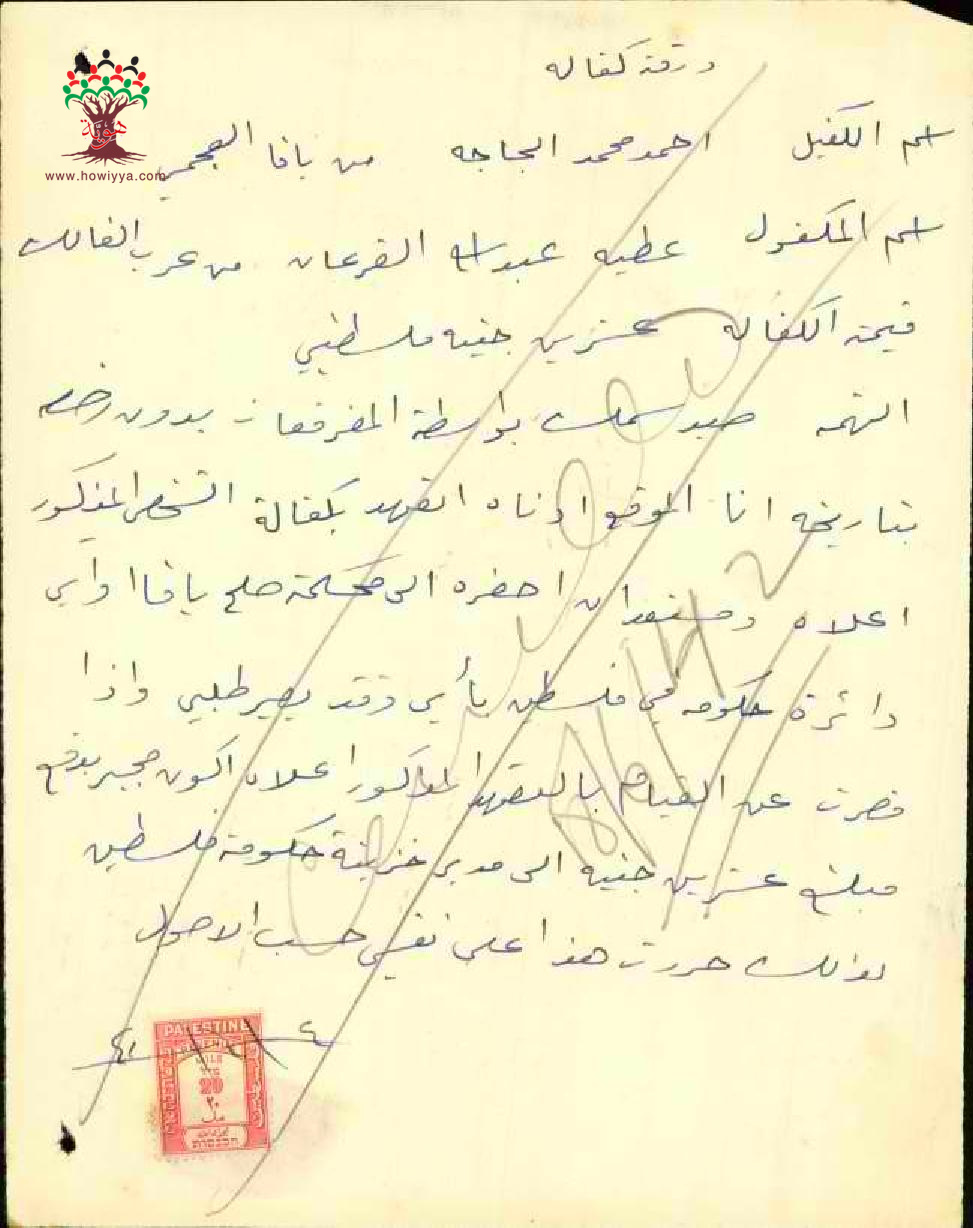 ورقة كفاله
اسم الكفيل احمد محمد الجاجه من يافا العجمي
اسم المكفول عطيه عبدالله القرعان من عرب الفالك
قيمة الكفاله عشرين جنيه فلسطيني
التهمه صيد سمك بواسطة المفرقعات بدون رخصه
بتاريخه انا الموقع ادناه اتعهد بكفالة الشخص المذكور
اعلاه ومستعد ان احضره الى محكمة صلح يافا او اي
دائرة حكومه في فلسطين بأي وقت يصير طلبي واذا
قصرت عن القيام بالتعهد المذكور اعلاه اكون مجبر بدفع
مبلغ عشرين جنيه الى مدير خزينة حكومة فلسطين
لذالك حررت هذا على نفسي حسب الاصول
هوية
www.howiyya.com
PALESTINE
MILS
20
٢٠
مل